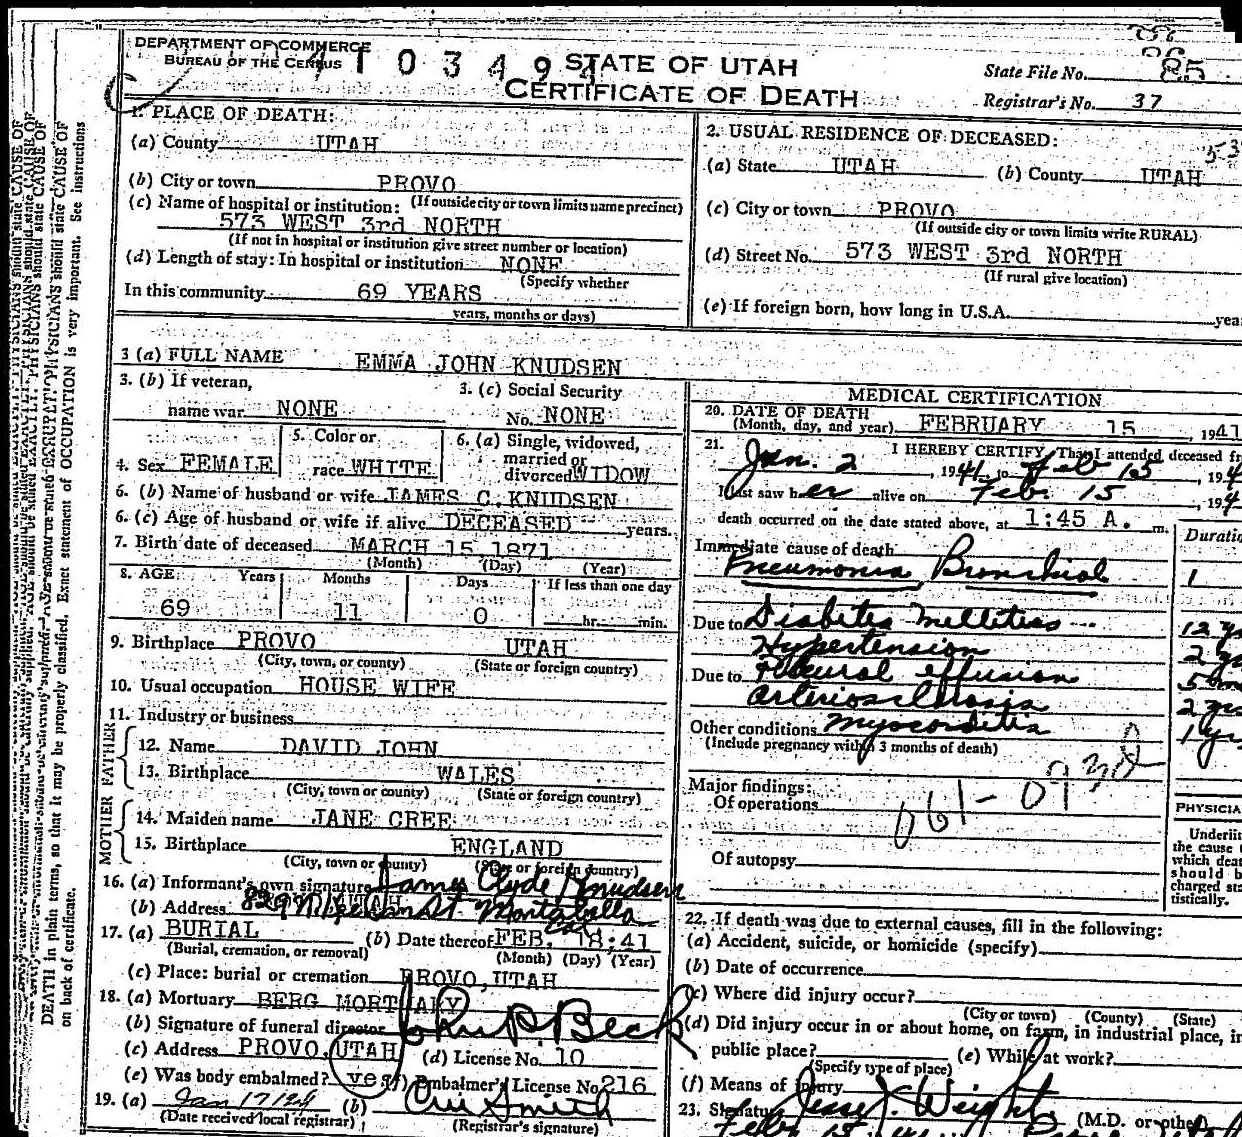 DEPARTMENT OF COMMERCE
BUREAU OF THE CENSUS
STATE OF UTAH
CERTIFICATE OF DEATH
State File No. 85
Registrar's No. 37
1. PLACE OF DEATH:
(a) County UTAH
(b) City or town PROVO
(If outside city or town limits name precinct)
(c) Name of hospital or institution:
573 WEST 3rd NORTH
(If not in hospital or institution give street number or location)
(d) Length of stay: In hospital or institution NONE
(Specify whether
In this community 69 YEARS
years, months or days)
2. USUAL RESIDENCE OF DECEASED:
(a) State UTAH (b) County UTAH
(c) City or town PROVO
(If outside city or town limits write RURAL)
(d) Street No. 573 WEST 3rd NORTH
(If rural give location)
(e) If foreign born, how long in U.S.A. yea
3 (a) FULL NAME EMMA JOHN KNUDSEN
3. (b) If veteran,
name war NONE
3. (c) Social Security
No. NONE
4. Sex FEMALE
5. Color or
race WHITE
6. (a) Single, widowed,
married or
divorced WIDOW
6. (b) Name of husband or wife JAMES C. KNUDSEN
6. (c) Age of husband or wife if alive DECEASED years.
7. Birth date of deceased MARCH 15, 1871
(Month) (Day) (Year)
8. AGE Years Months Days If less than one day
69 11 0 hr. min.
9. Birthplace PROVO UTAH
(City, town, or county) (State or foreign country)
10. Usual occupation HOUSE WIFE
11. Industry or business
FATHER
12. Name DAVID JOHN
13. Birthplace WALES
(City, town, or county) (State or foreign country)
MOTHER
14. Maiden name JANE CREE
15. Birthplace ENGLAND
(City, town or county) (State or foreign country)
16. (a) Informant's own signature James Clyde Knudsen
(b) Address 829
17. (a) BURIAL (b) Date thereof FEB. 18, 41
(Burial, cremation, or removal) (Month) (Day) (Year)
(c) Place: burial or cremation PROVO, UTAH
18. (a) Mortuary BERG MORTUARY
(b) Signature of funeral director
(c) Address PROVO, UTAH (d) License No. 10
(e) Was body embalmed? yes (f) Embalmer's License No. 216
19. (a) (b)
(Date received local registrar) (Registrar's signature)
MEDICAL CERTIFICATION
20. DATE OF DEATH
(Month, day, and year) FEBRUARY 15, 1941
21. I HEREBY CERTIFY, That I attended deceased fr
Jan. 2, 1941 to Feb 15, 194
I last saw her alive on Feb. 15, 194
death occurred on the date stated above, at 1:45 A. m.
Immediate cause of death Duratio
Pneumonia, Bronchial 1
Due to Diabetes mellitus 12 y
Hypertension 2 y
Due to Pleural effusion 5 m
arteriosclerosis 2 yrs
Other conditions myocarditis 1 yr
(Include pregnancy within 3 months of death)
Major findings:
Of operations
Of autopsy
PHYSICIA
Underlin
the cause t
which deat
should b
charged sta
tistically.
22. If death was due to external causes, fill in the following:
(a) Accident, suicide, or homicide (specify)
(b) Date of occurrence
(c) Where did injury occur?
(City or town) (County) (State)
(d) Did injury occur in or about home, on farm, in industrial place, in
public place? (e) While at work?
(Specify type of place)
(f) Means of injury
23. Signature (M.D. or other)
DEATH in plain terms, so that it may be properly classified. Exact statement of OCCUPATION is very important. See instructions
on back of certificate.